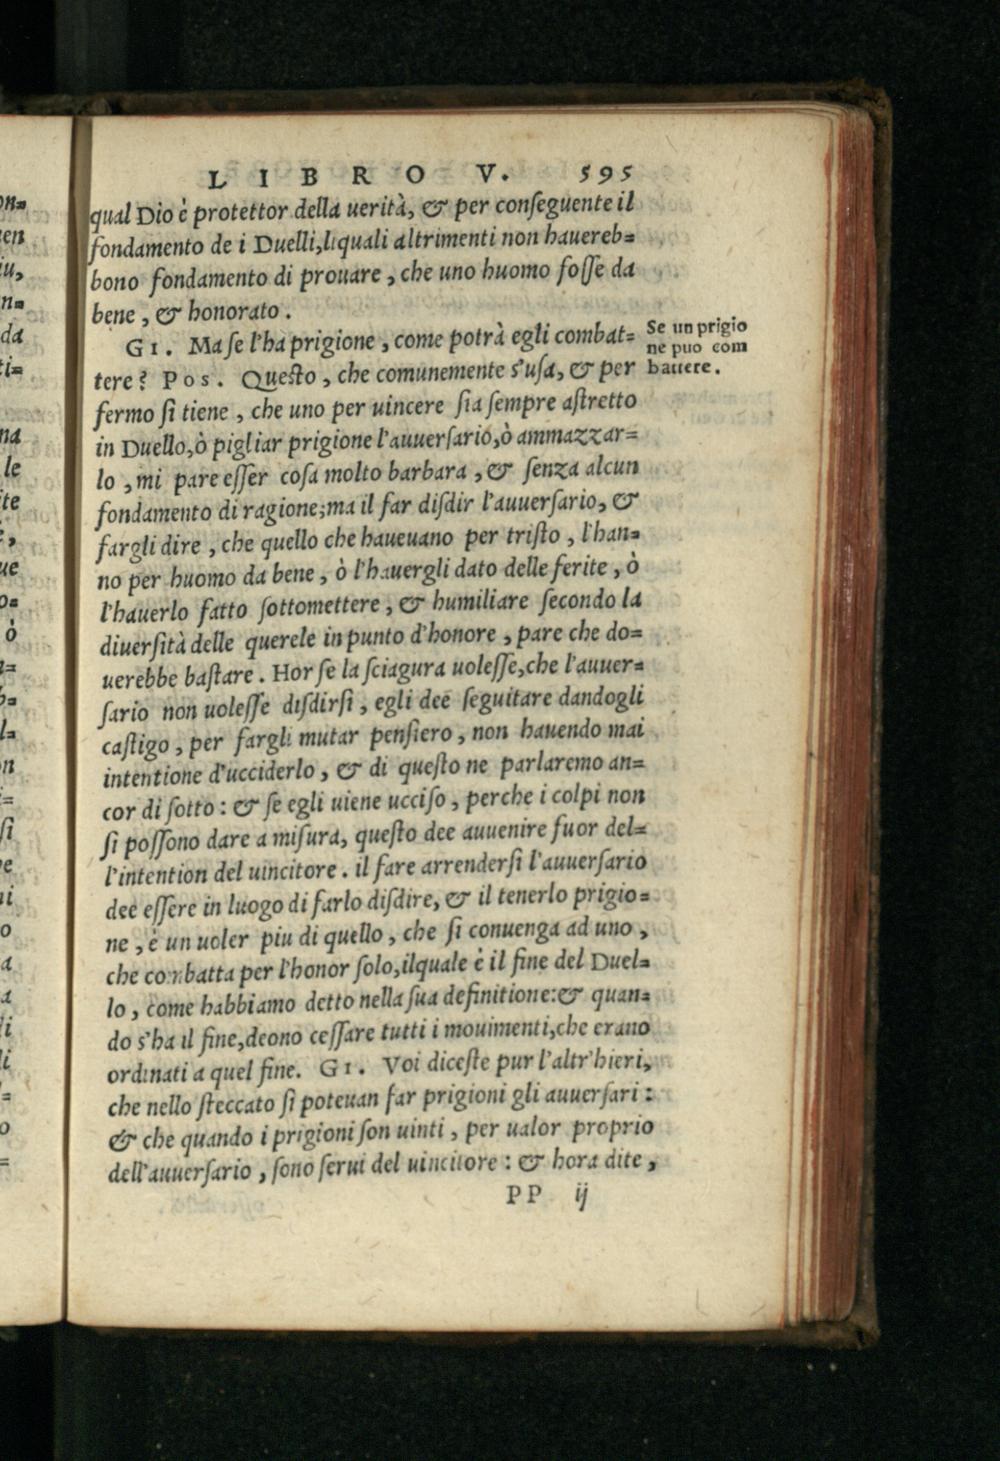 LIBRO V. 595
qual Dio è protettor della uerità, & per conſeguente il
fondamento de i Duelli,liquali altrimenti non hauereb=
bono fondamento di prouare, che uno huomo foſſe da
bene, & honorato.
GI. Ma ſe l'ha prigione, come potrà egli combat=
Se un prigio
ne puo com
battere.
tere? Pos. Queſto, che comunemente s'uſa, & per
fermo ſi tiene, che uno per uincere ſia ſempre aſtretto
in Duello,ò pigliar prigione l'auuerſario,ò ammazzar=
lo, mi pare eſſer coſa molto barbara, & ſenza alcun
fondamento di ragione;ma il far diſdir l'auuerſario, &
fargli dire, che quello che haueuano per triſto, l'han=
no per huomo da bene, ò l'hauergli dato delle ferite, ò
l'hauerlo fatto ſottomettere, & humiliare ſecondo la
diuerſità delle querele in punto d'honore, pare che do=
uerebbe baſtare. Hor ſe la ſciagura uoleſſe,che l'auuer=
ſario non uoleſſe diſdirſi, egli dee ſeguitare dandogli
caſtigo, per fargli mutar penſiero, non hauendo mai
intentione d'ucciderlo, & di queſto ne parlaremo an=
cor di ſotto: & ſe egli uiene ucciſo, perche i colpi non
ſi poſſono dare a miſura, queſto dee auuenire fuor del=
l'intention del uincitore. il fare arrenderſi l'auuerſario
dee eſſere in luogo di farlo diſdire, & il tenerlo prigio=
ne, è un uoler piu di quello, che ſi conuenga ad uno,
che combatta per l'honor ſolo,ilquale è il fine del Duel=
lo, come habbiamo detto nella ſua definitione:& quan=
do s'ha il fine,deono ceſſare tutti i mouimenti,che erano
ordinati a quel fine. GI. Voi diceſte pur l'altr'hieri,
che nello ſteccato ſi poteuan far prigioni gli auuerſari:
& che quando i prigioni ſon uinti, per ualor proprio
dell'auuerſario, ſono ſerui del uincitore: & hora dite,
PP ij